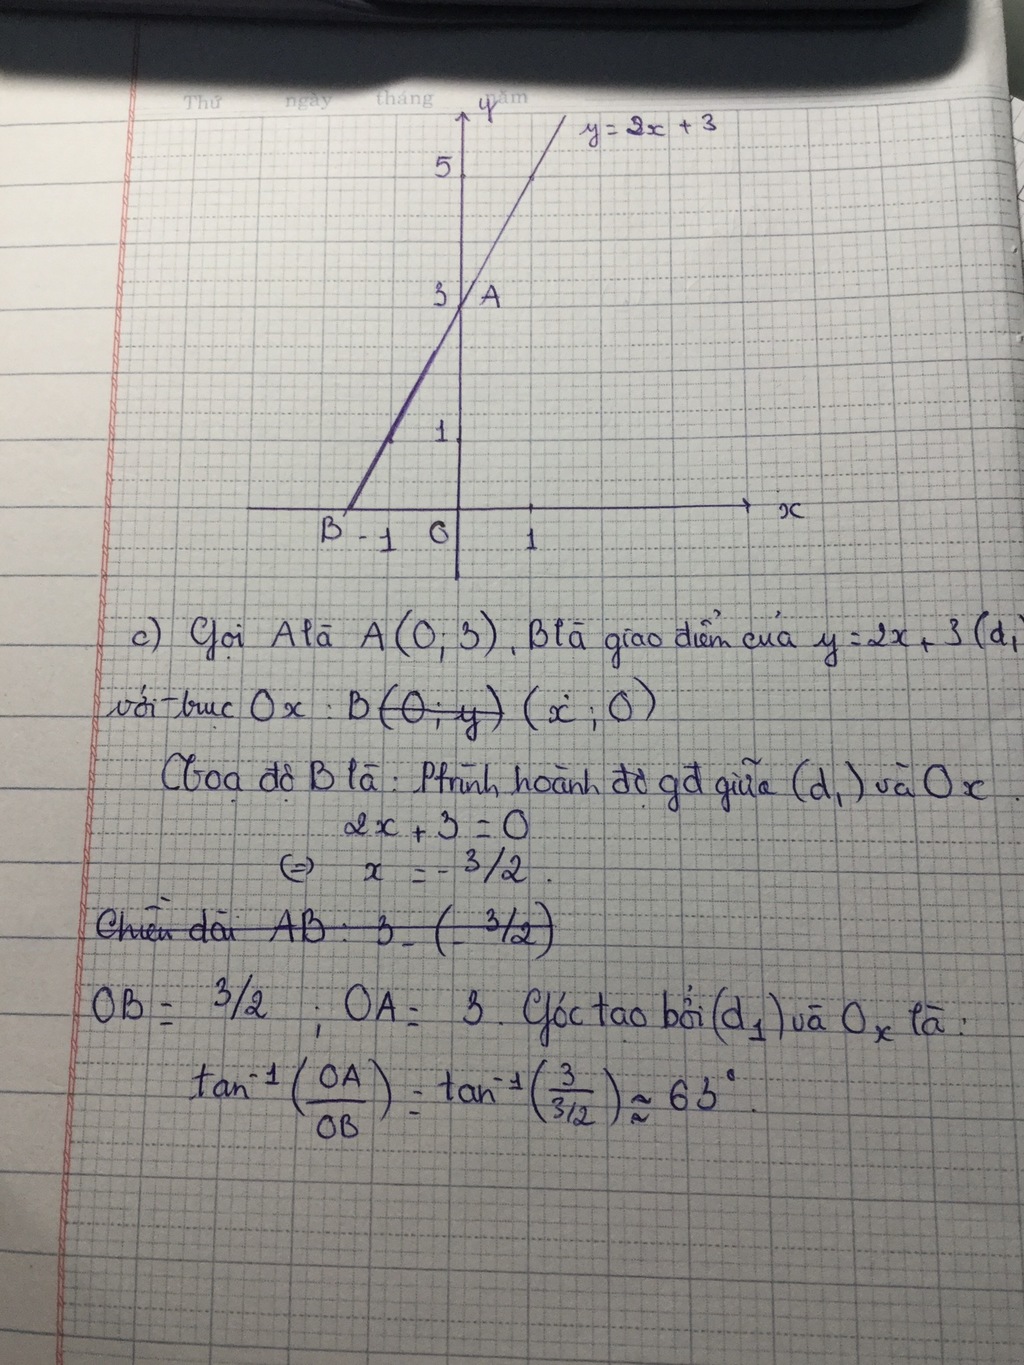 Thứ ngày tháng năm
y
y = 2x + 3
5
3 A
1
x
B -1 O 1
c) Gọi A là A(0; 3), B là giao điểm của y = 2x + 3 (d₁
với trục Ox : B (0; y) (x ; 0)
Toạ độ B là : Ptrình hoành độ gđ giữa (d₁) và Ox
2x + 3 = 0
(=) x = - 3/2 .
Chiều dài AB : 3 - (- 3/2)
OB = 3/2 ; OA = 3. Góc tạo bởi (d₁) và Ox là :
tan⁻¹ (OA/OB) = tan⁻¹ (3/(3/2)) ≈ 63°.